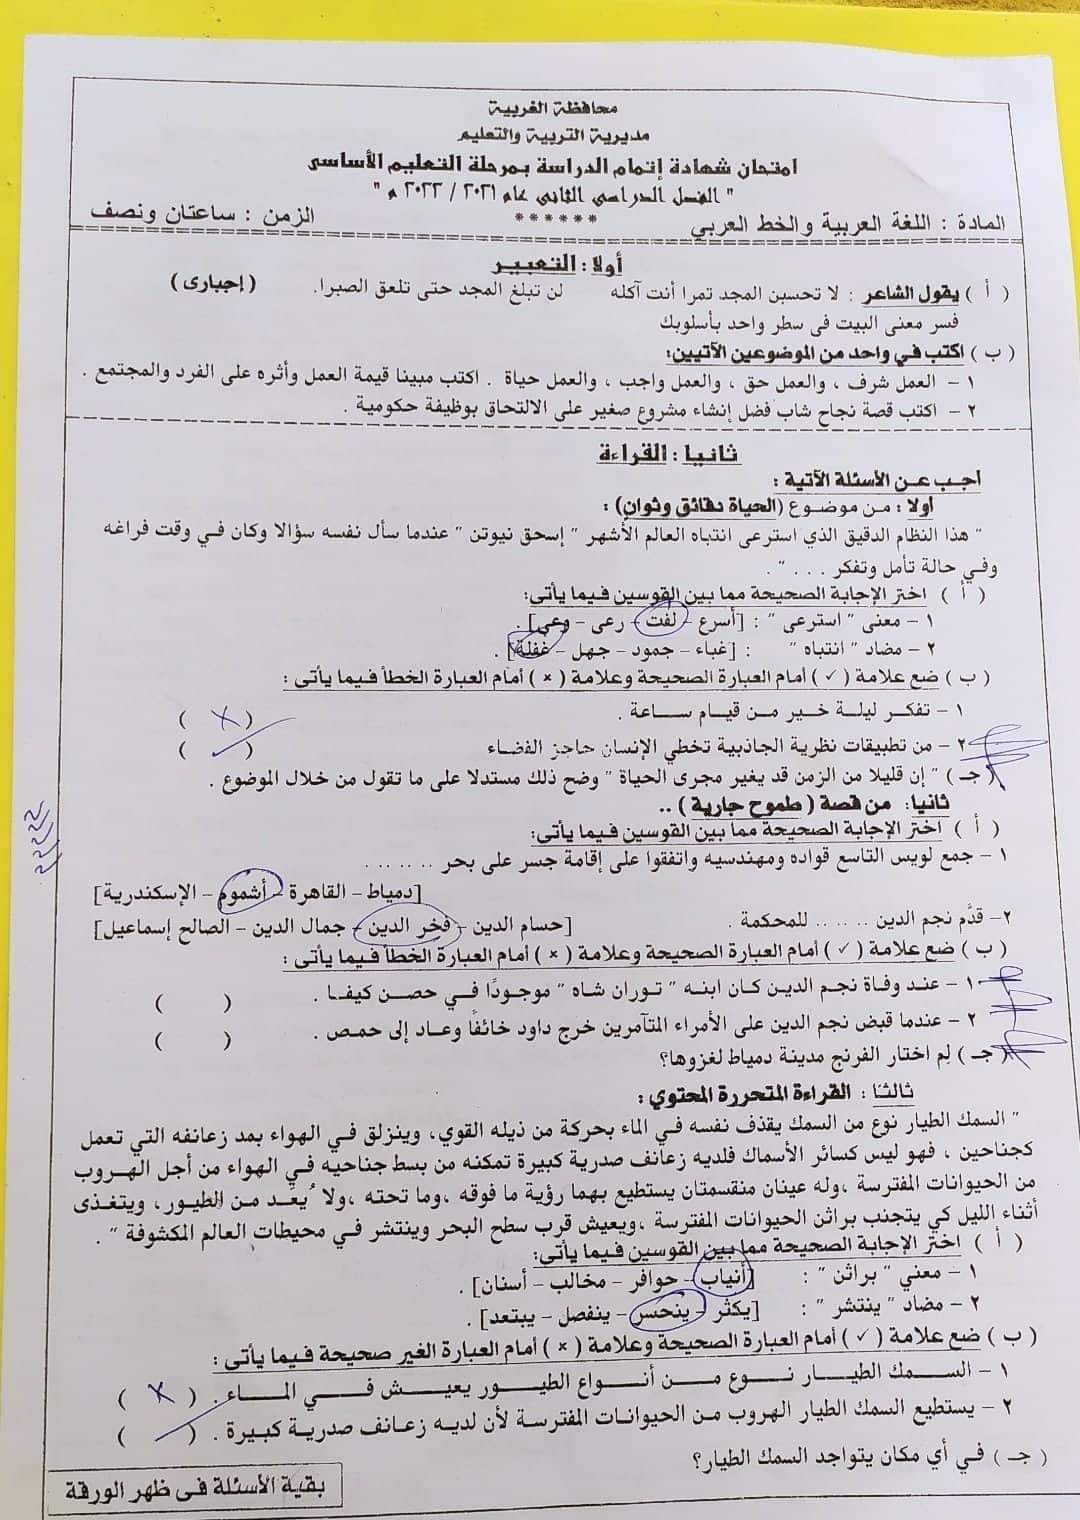 محافظة الغربية
مديرية التربية والتعليم
امتحان شهادة إتمام الدراسة بمرحلة التعليم الأساسى
" الفصل الدراسى الثانى عام ٢٠٢١ / ٢٠٢٢ م "
المادة : اللغة العربية والخط العربي ****** الزمن : ساعتان ونصف
أولا : التعبير
( أ ) يقول الشاعر : لا تحسبن المجد تمرا أنت آكله لن تبلغ المجد حتى تلعق الصبرا. ( إجبارى )
فسر معنى البيت فى سطر واحد بأسلوبك
( ب ) اكتب في واحد من الموضوعين الآتيين:
١ - العمل شرف ، والعمل حق ، والعمل واجب ، والعمل حياة . اكتب مبينا قيمة العمل وأثره على الفرد والمجتمع .
٢ - اكتب قصة نجاح شاب فضل إنشاء مشروع صغير على الالتحاق بوظيفة حكومية .
ثانيا : القراءة
أجب عن الأسئلة الآتية :
أولا : من موضوع (الحياة دقائق وثوان) :
" هذا النظام الدقيق الذي استرعى انتباه العالم الأشهر " إسحق نيوتن " عندما سأل نفسه سؤالا وكان في وقت فراغه
وفي حالة تأمل وتفكر . . . " .
( أ ) اختر الإجابة الصحيحة مما بين القوسين فيما يأتى:
١ - معنى " استرعى " : [أسرع - لفت - رعى - وعى] .
٢ - مضاد " انتباه " : [غباء - جمود - جهل - غفلة] .
( ب ) ضع علامة ( ✓ ) أمام العبارة الصحيحة وعلامة ( × ) أمام العبارة الخطأ فيما يأتى :
١ - تفكر ليلة خير من قيام ساعة . ( × )
٢ - من تطبيقات نظرية الجاذبية تخطي الإنسان حاجز الفضاء ( ✓ )
( جـ ) " إن قليلا من الزمن قد يغير مجرى الحياة " وضح ذلك مستدلا على ما تقول من خلال الموضوع .
ثانيا: من قصة ( طموح جارية ) ..
( أ ) اختر الإجابة الصحيحة مما بين القوسين فيما يأتى:
١ - جمع لويس التاسع قواده ومهندسيه واتفقوا على إقامة جسر على بحر .. .. .. .
[دمياط - القاهرة - أشموم - الإسكندرية]
٢- قدَّم نجم الدين .. .. .. للمحكمة . [حسام الدين - فخر الدين - جمال الدين - الصالح إسماعيل]
( ب ) ضع علامة ( ✓ ) أمام العبارة الصحيحة وعلامة ( × ) أمام العبارة الخطأ فيما يأتى :
١ - عند وفاة نجم الدين كان ابنه " توران شاه " موجودًا في حصن كيفا . ( )
٢ - عندما قبض نجم الدين على الأمراء المتآمرين خرج داود خائفًا وعاد إلى حمص . ( )
( جـ ) لِم اختار الفرنج مدينة دمياط لغزوها؟
ثالثا : القراءة المتحررة المحتوي :
" السمك الطيار نوع من السمك يقذف نفسه في الماء بحركة من ذيله القوي، وينزلق في الهواء بمد زعانفه التي تعمل
كجناحين ، فهو ليس كسائر الأسماك فلديه زعانف صدرية كبيرة تمكنه من بسط جناحيه في الهواء من أجل الهروب
من الحيوانات المفترسة ،وله عينان منقسمتان يستطيع بهما رؤية ما فوقه ،وما تحته ،ولا يُعد من الطيور، ويتغذى
أثناء الليل كي يتجنب براثن الحيوانات المفترسة ،ويعيش قرب سطح البحر وينتشر في محيطات العالم المكشوفة " .
( أ ) اختر الإجابة الصحيحة مما بين القوسين فيما يأتى:
١ - معني " براثن " : [أنياب - حوافر - مخالب - أسنان] .
٢ - مضاد " ينتشر " : [يكثر - ينحسر - ينفصل - يبتعد] .
( ب ) ضع علامة ( ✓ ) أمام العبارة الصحيحة وعلامة ( × ) أمام العبارة الغير صحيحة فيما يأتى :
١ - السمك الطيار نوع من أنواع الطيور يعيش في الماء . ( × )
٢ - يستطيع السمك الطيار الهروب من الحيوانات المفترسة لأن لديه زعانف صدرية كبيرة . ( ✓ )
( جـ ) في أي مكان يتواجد السمك الطيار؟
بقية الأسئلة فى ظهر الورقة